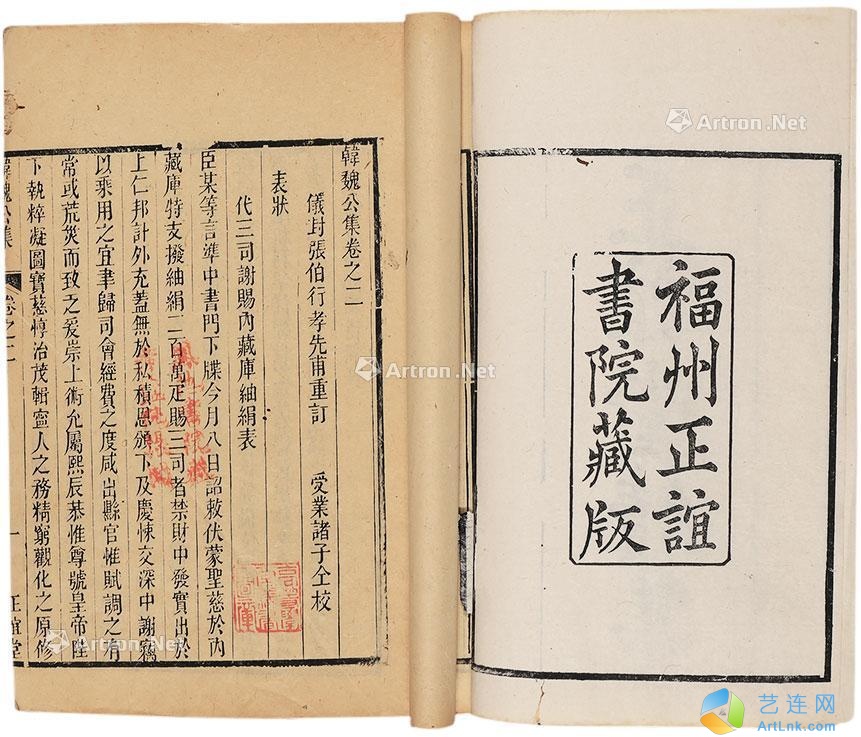 福州正誼
書院藏版
韓魏公集卷之二
儀封張伯行孝先甫重訂 受業諸子仝校
表狀
代三司謝賜內藏庫紬絹表
臣某等言準中書門下牒今月八日詔敕伏蒙聖慈於內
藏庫特支撥紬絹二百萬疋賜三司者禁財中發實出於
上仁邦計外充蓋無於私積恩頒下及慶悚交深中謝竊
以乘用之宜聿歸司會經費之度咸出縣官惟賦調之有
常或荒災而致之爰崇上術允屬熙辰恭惟尊號皇帝陛
下執粹凝圖寶慈惇治茂輯寧人之務精窮觀化之原修
韓魏公集 卷之二 一 正誼堂
Artron.Net
Artron.Net
Artron.Net
Artron.Net
艺连网
ArtLnk.com